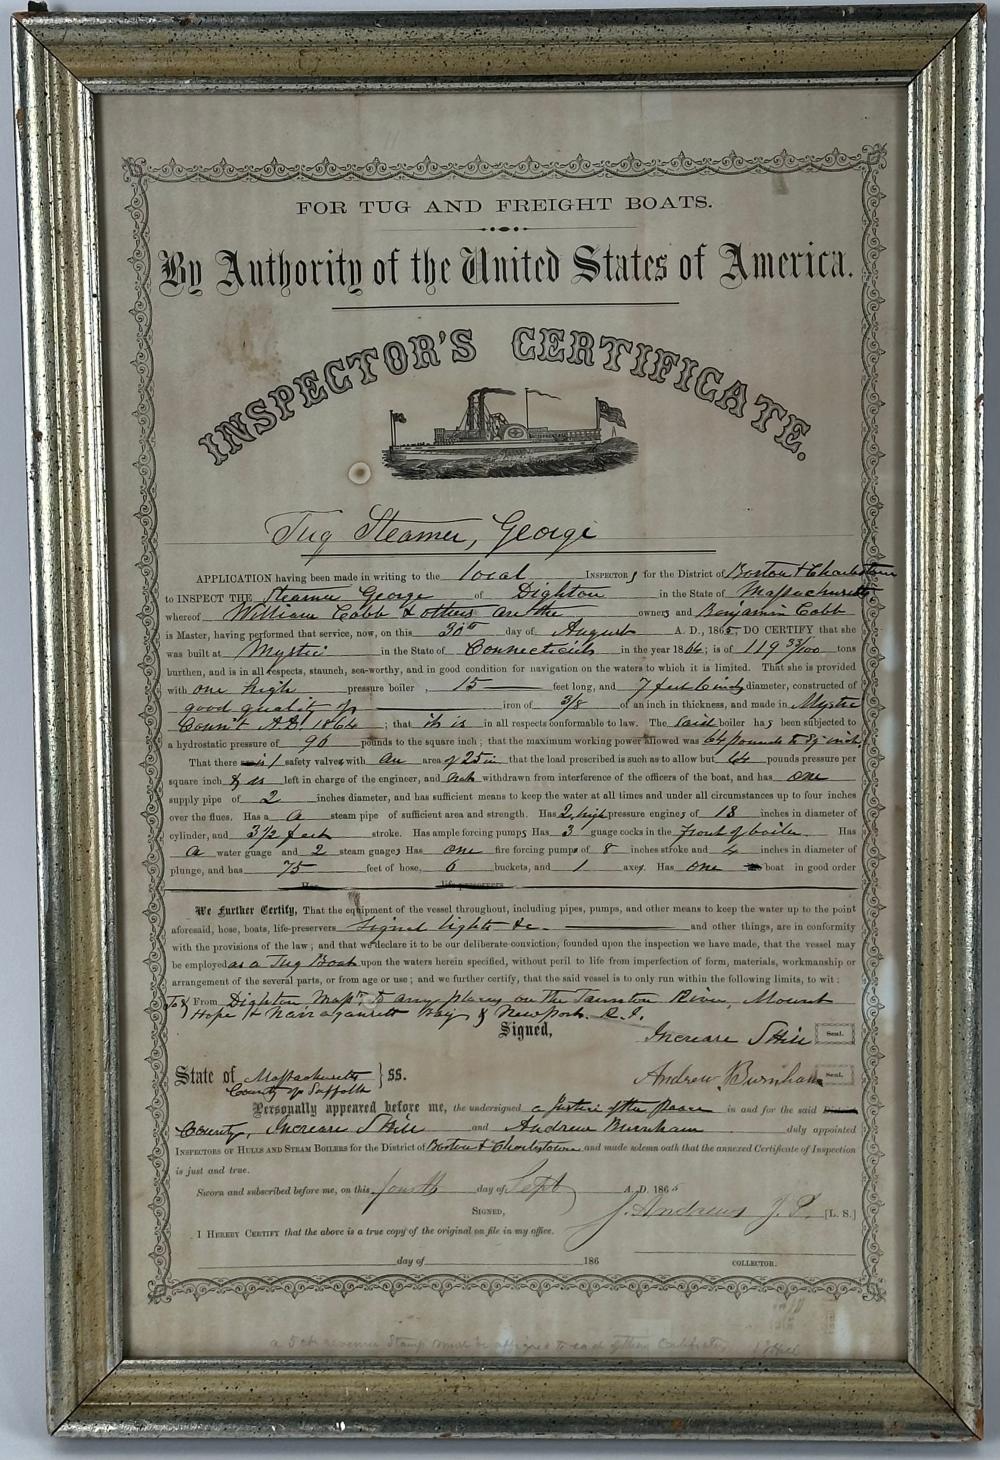 FOR TUG AND FREIGHT BOATS.
By Authority of the United States of America.
INSPECTOR'S CERTIFICATE.
Tug Steamer, George
APPLICATION having been made in writing to the local INSPECTORS for the District of Boston & Charlestown
to INSPECT THE Steamer George of Dighton in the State of Massachusetts
whereof William Cobb & others are the owners and Benjamin Cobb
is Master, having performed that service, now, on this 30th day of August A. D., 1865, DO CERTIFY that she
was built at Mystic in the State of Connecticut in the year 1864; is of 119 33/100 tons
burthen, and is in all respects, staunch, sea-worthy, and in good condition for navigation on the waters to which it is limited. That she is provided
with one high pressure boiler, 15 feet long, and 7 feet 6 inches diameter, constructed of
good quality of iron of 5/8 of an inch in thickness, and made in Mystic
Conn't A.D. 1864; that it is in all respects conformable to law. The said boiler has been subjected to
a hydrostatic pressure of 96 pounds to the square inch; that the maximum working power allowed was 64 pounds to sq inch.
That there is 1 safety valve with an area of 25 in that the load prescribed is such as to allow but 64 pounds pressure per
square inch & is left in charge of the engineer, and not withdrawn from interference of the officers of the boat, and has one
supply pipe of 2 inches diameter, and has sufficient means to keep the water at all times and under all circumstances up to four inches
over the flues. Has a a steam pipe of sufficient area and strength. Has 2 high pressure engines of 18 inches in diameter of
cylinder, and 3 1/2 feet stroke. Has ample forcing pumps Has 3 guage cocks in the front of boiler. Has
a water guage and 2 steam guages Has one fire forcing pump of 8 inches stroke and 4 inches in diameter of
plunge, and has 75 feet of hose, 6 buckets, and 1 axes. Has one boat in good order
Has life-preservers
We Further Certify, That the equipment of the vessel throughout, including pipes, pumps, and other means to keep the water up to the point
aforesaid, hose, boats, life-preservers signal lights &c. and other things, are in conformity
with the provisions of the law; and that we declare it to be our deliberate conviction, founded upon the inspection we have made, that the vessel may
be employed as a Tug Boat upon the waters herein specified, without peril to life from imperfection of form, materials, workmanship or
arrangement of the several parts, or from age or use; and we further certify, that the said vessel is to only run within the following limits, to wit:
To & From Dighton, Mass. to any places on the Taunton River, Mount
Hope & Narragansett Bay & Newport. R.I.
Signed, Increase S Hill Seal.
Andrew Burnham Seal.
State of Massachusetts } ss.
County of Suffolk
Personally appeared before me, the undersigned a Justice of the Peace in and for the said District
County, Increase S Hill and Andrew Burnham duly appointed
INSPECTORS OF HULLS AND STEAM BOILERS for the District of Boston & Charlestown and made solemn oath that the annexed Certificate of Inspection
is just and true.
Sworn and subscribed before me, on this fourth day of Sept A. D. 1865
SIGNED, J. Andrews J. P. [L. S.]
I HEREBY CERTIFY that the above is a true copy of the original on file in my office.
day of 186 COLLECTOR.
a 5 ct revenue stamp must be affixed to each of these Certificates